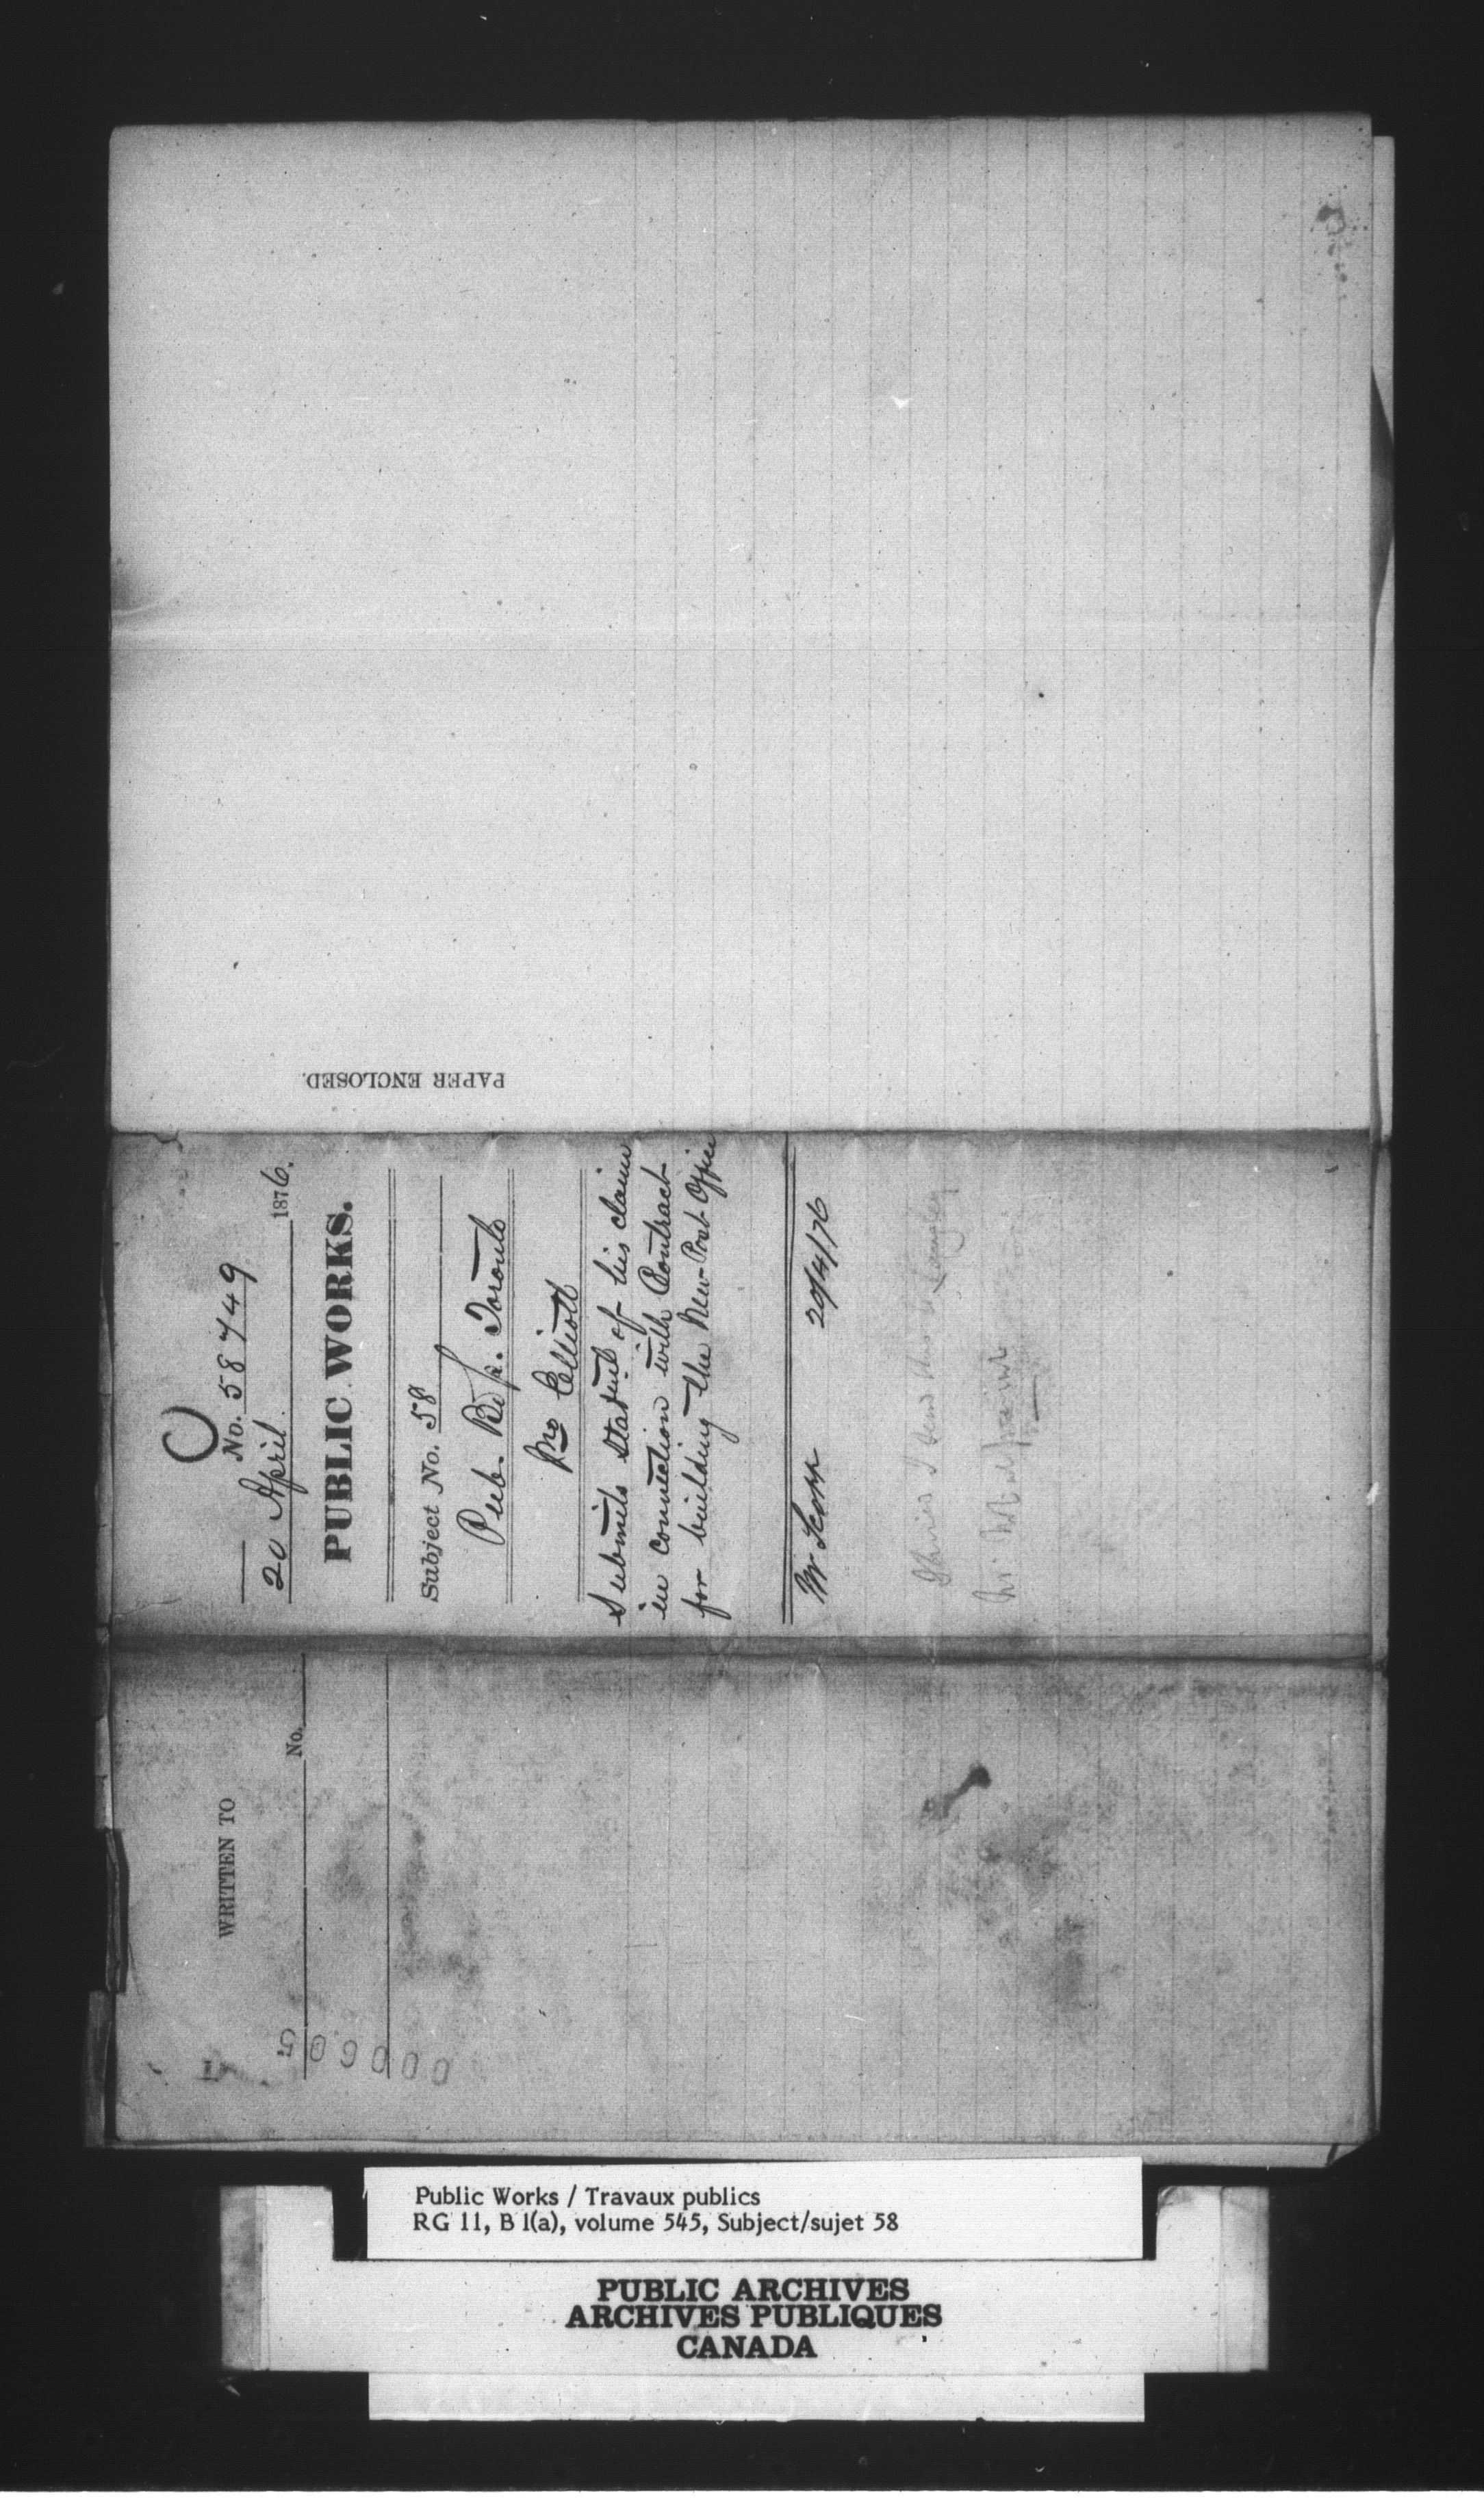 PAPER ENCLOSED.
No. 58749
20 April 1876.
PUBLIC WORKS.
Subject No. 58
Pub. Toronto
Jno Elliott
Submits Statemt of his claim
in connection with Contract
for building the New Post Office
Mr Scott 20/4/76
I send this to Langley
WRITTEN TO
No.
000605
Public Works / Travaux publics
RG 11, B 1(a), volume 545, Subject/sujet 58
PUBLIC ARCHIVES
ARCHIVES PUBLIQUES
CANADA